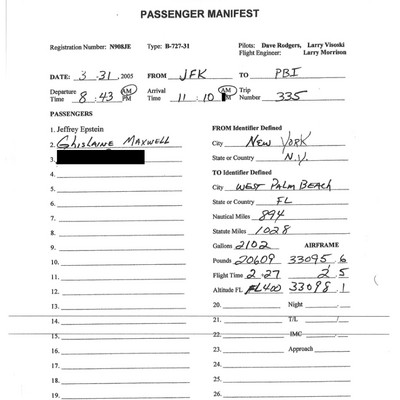 PASSENGER MANIFEST
Registration Number: N908JE Type: B-727-31 Pilots: Dave Rodgers, Larry Visoski
Flight Engineer: Larry Morrison
DATE: 3-31, 2005 FROM JFK TO PBI
Departure Time 8:43 AM PM Arrival Time 11:10 AM M Trip Number 335
PASSENGERS
1. Jeffrey Epstein
2. GHISLAINE MAXWELL
3.
4.
5.
6.
7.
8.
9.
10.
11.
12.
13.
14.
15.
16.
17.
18.
19.
FROM Identifier Defined
City NEW YORK
State or Country N.Y.
TO Identifier Defined
City WEST PALM BEACH
State or Country FL
Nautical Miles 894
Statute Miles 1028
Gallons 2102 AIRFRAME
Pounds 20609 33095.6
Flight Time 2-27 2.5
Altitude FL FL400 33098.1
20. Night
21. T/L /
22. IMC
23. Approach
24.
25.
26.